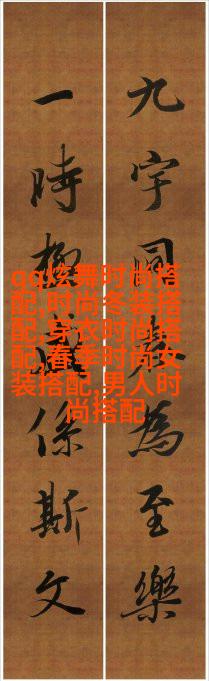 九宇同為至樂
一時係斯文
qq炫舞时尚搭
配,时尚冬装搭
配,穿衣时尚搭
配,春季时尚女
装搭配,男人时
尚搭配